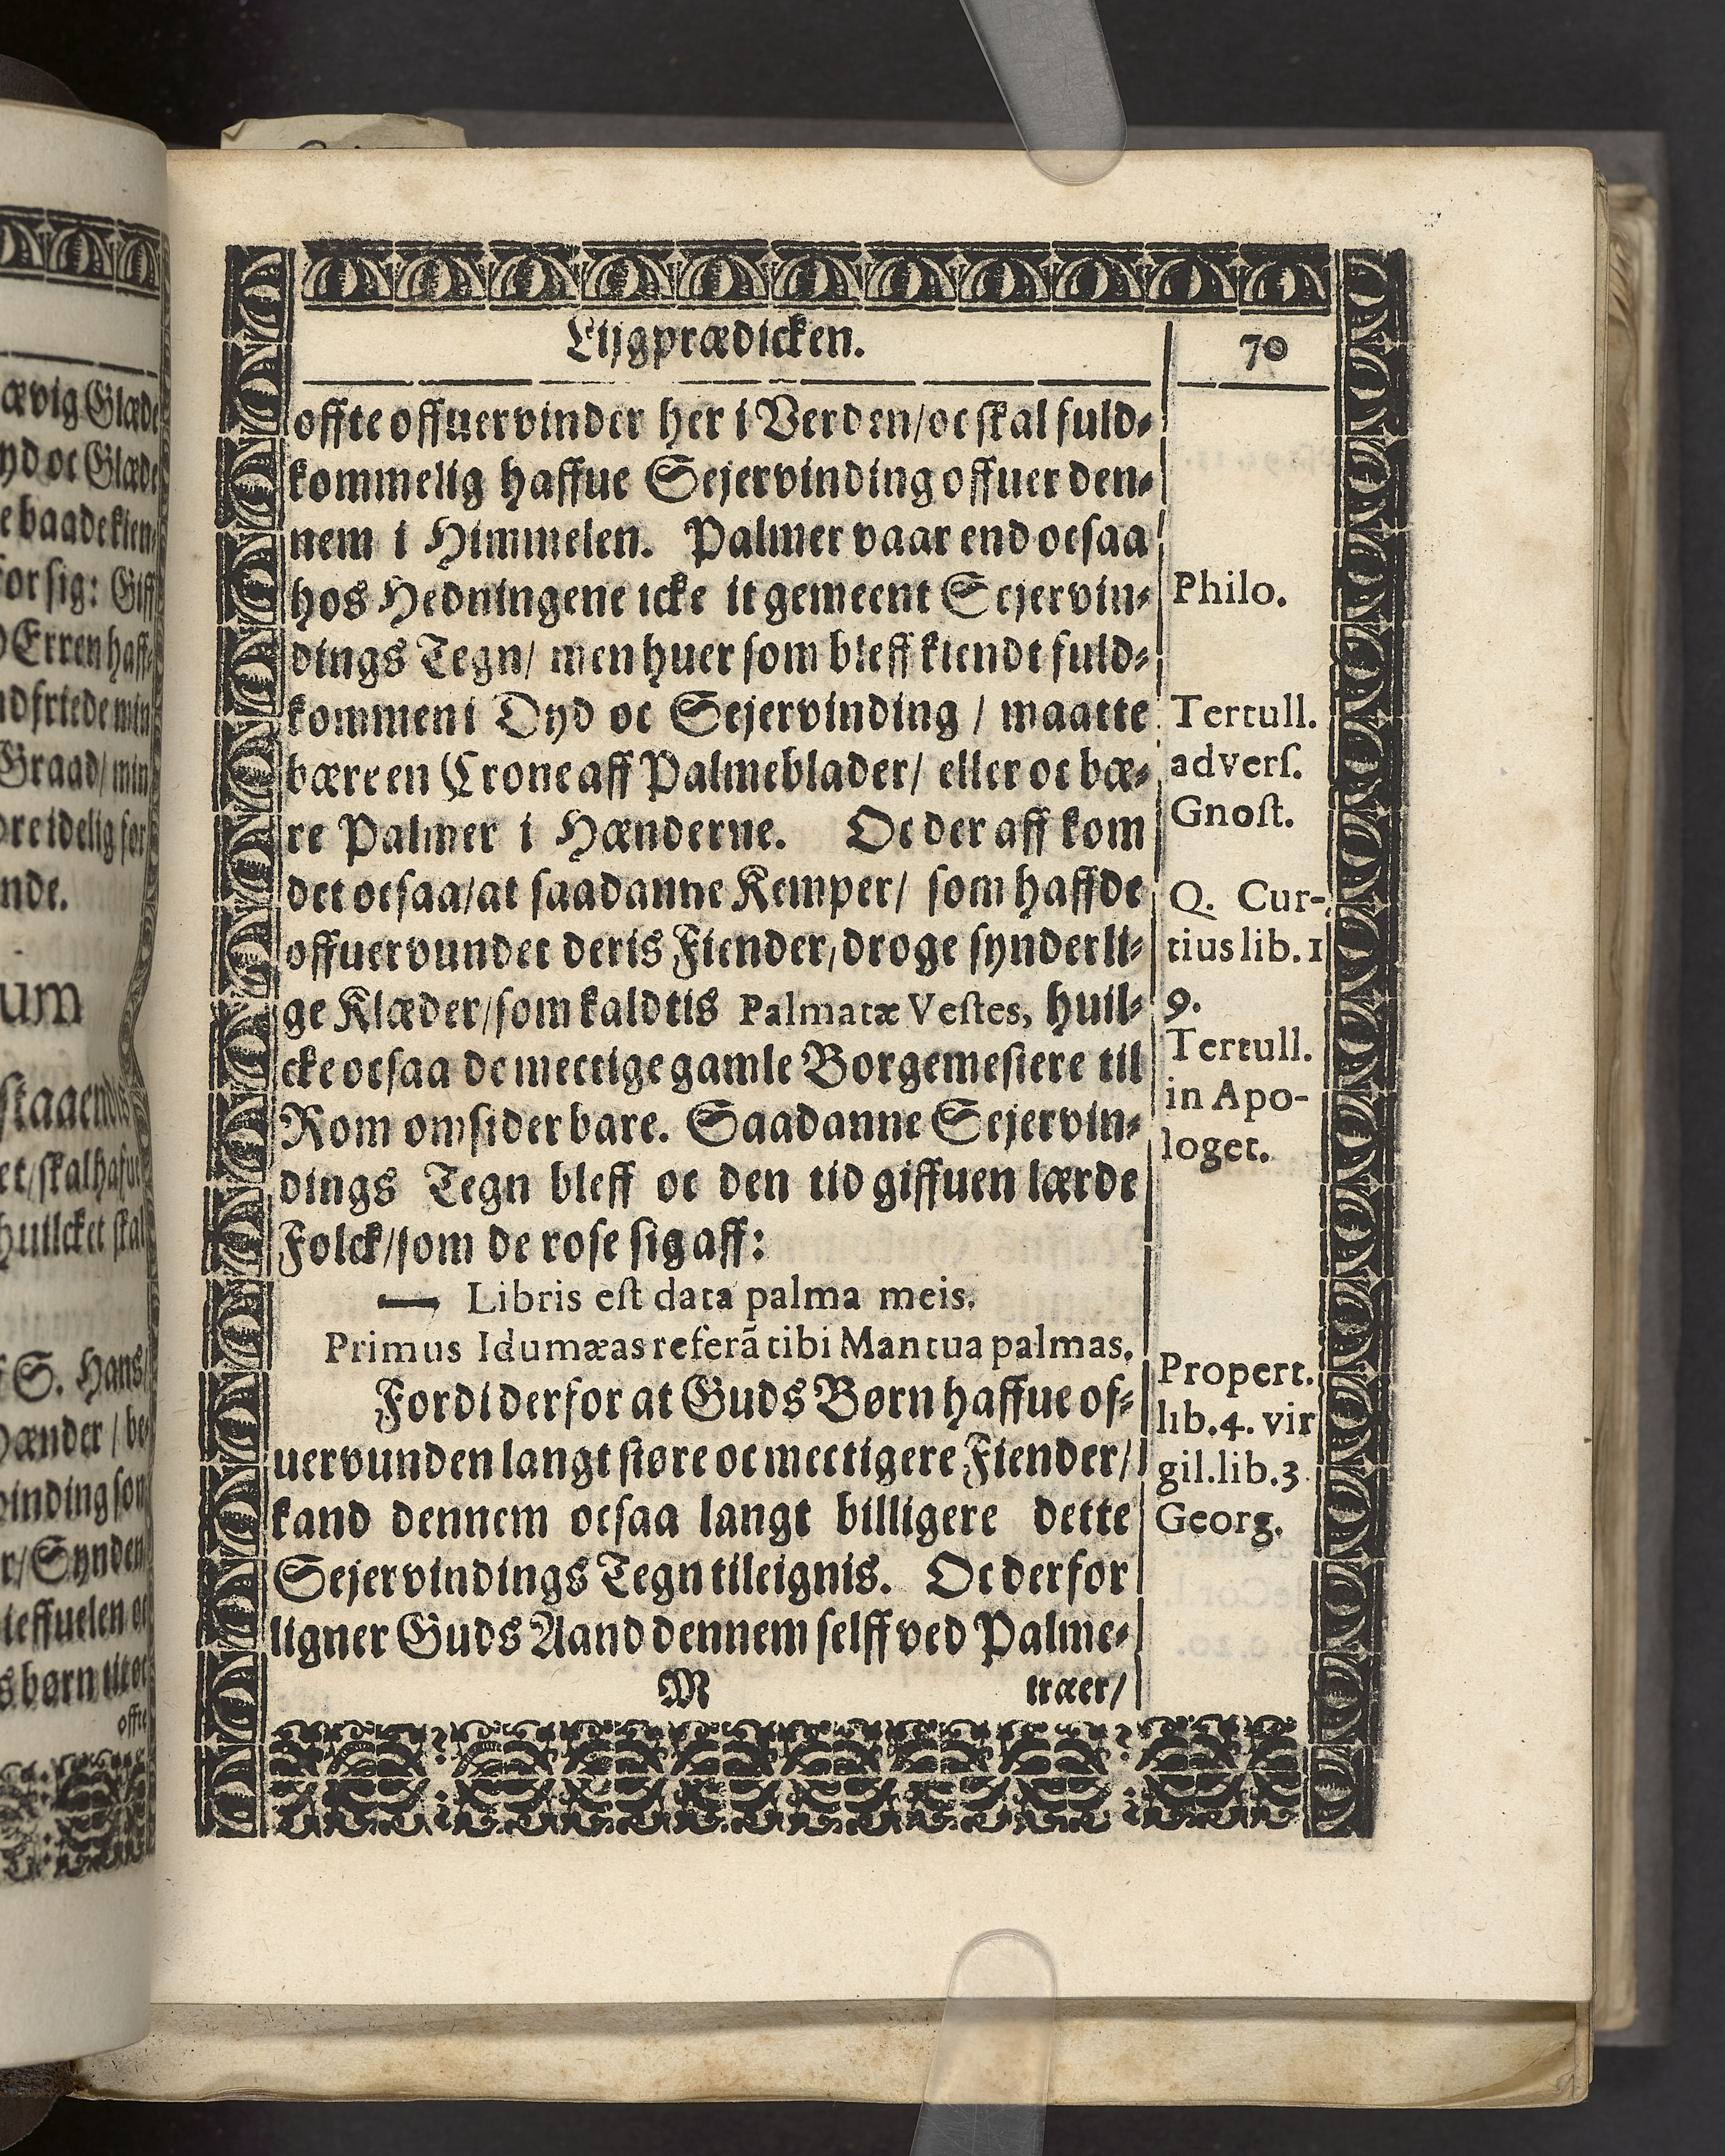 Lijgprædicken.
70
offte offuervinder her i Verden/oc skal fuld⸗
kommelig haffue Sejervinding offuer den⸗
nem i Himmelen. Palmer vaar end ocsaa
hos Hedningene icke it gemeent Sejervin⸗
dings Tegn/ men huer som bleff kiendt fuld⸗
kommen i Dyd oc Sejervinding / maatte
bære en Crone aff Palmeblader/ eller oc bæ⸗
re Palmer i Hænderne. Oc der aff kom
det ocsaa/at saadanne Kemper/ som haffde
offuervundet deris Fiender/droge synderli⸗
ge Klæder/som kaldtis Palmatæ Vestes, huil⸗
cke ocsaa de mectige gamle Borgemestere til
Rom omsider bare. Saadanne Sejervin⸗
dings Tegn bleff oc den tid giffuen lærde
Folck/som de rose sig aff:
— Libris est data palma meis.
Primus Idumæas referã tibi Mantua palmas.
Fordi derfor at Guds Børn haffue of⸗
uervunden langt støre oc mectigere Fiender/
kand dennem ocsaa langt billigere dette
Sejervindings Tegn tileignis. Oc derfor
ligner Guds Aand dennem selff ved Palme⸗
M træer/
Philo.
Tertull.
adverſ.
Gnoſt.
Q. Cur-
tius lib. 1
9.
Tertull.
in Apo-
loget.
Propert.
lib.4. vir
gil.lib.3.
Georg.
ævig Glæde
yd oc Glæde
e baade kien⸗
for sig: Giff
Erren haff⸗
nd friede min
Graad/ min
ore idelig for
nde.
um
staaendis
et/skal hafue
huilcket skal
S. Hans/
hænder / be⸗
vinding som
r/Synden
ieffuelen oc
s børn tit oc
offte